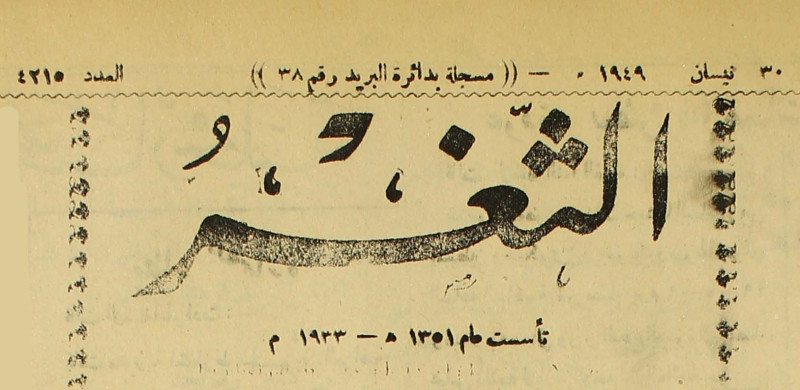 ٣٠ نيسان ١٩٤٩ م — (( مسجلة بدائرة البريد رقم ٣٨ )) العدد ٤٢١٥
الثَّغْرُ
تأسست عام ١٣٥١ ه — ١٩٣٣ م